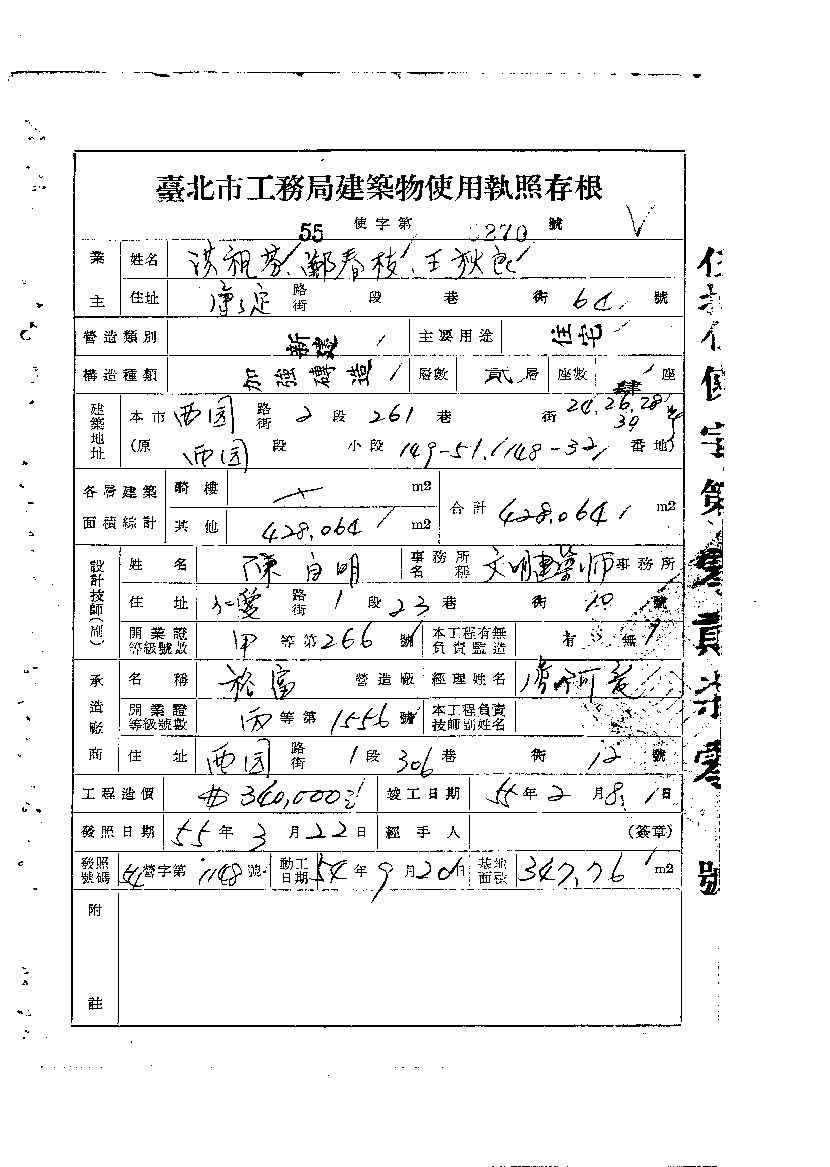 臺北市工務局建築物使用執照存根
55 使字第 0270 號
業主 姓名 洪祖芬、鄭春枝、王秋良
住址 康定 路街 段 巷 衖 64 號
營造類別 新建 主要用途 住宅
構造種類 加強磚造 層數 貳層 座數 肆座
建築地址 本市 西園 路街 2段 261巷 衖 24,26,28,30 號
(原 西園 段 小段 149-51,148-32 番地)
各層建築面積綜計 騎樓 m2 合計 428.064 m2
其他 428.064 m2
設計技師(副) 姓名 陳自明 事務所名稱 文明建築师事務所
住址 仁愛 路街 1段 23巷 衖 10 號
開業證等級號數 甲等第266號 本工程有無負責監造 有 無
承造廠商 名稱 裕富 營造廠 經理姓名 廖阿
開業證等級號數 丙等第1556號 本工程負責技師副姓名
住址 西园 路街 1段 306巷 衖 12 號
工程造價 340,000 竣工日期 55年2月8日
發照日期 55年3月22日 經手人 (簽章)
發照號碼 54營字第1148號 動工日期 54年9月20日 基地面積 347.76 m2
附註
使字第零貳柒零號